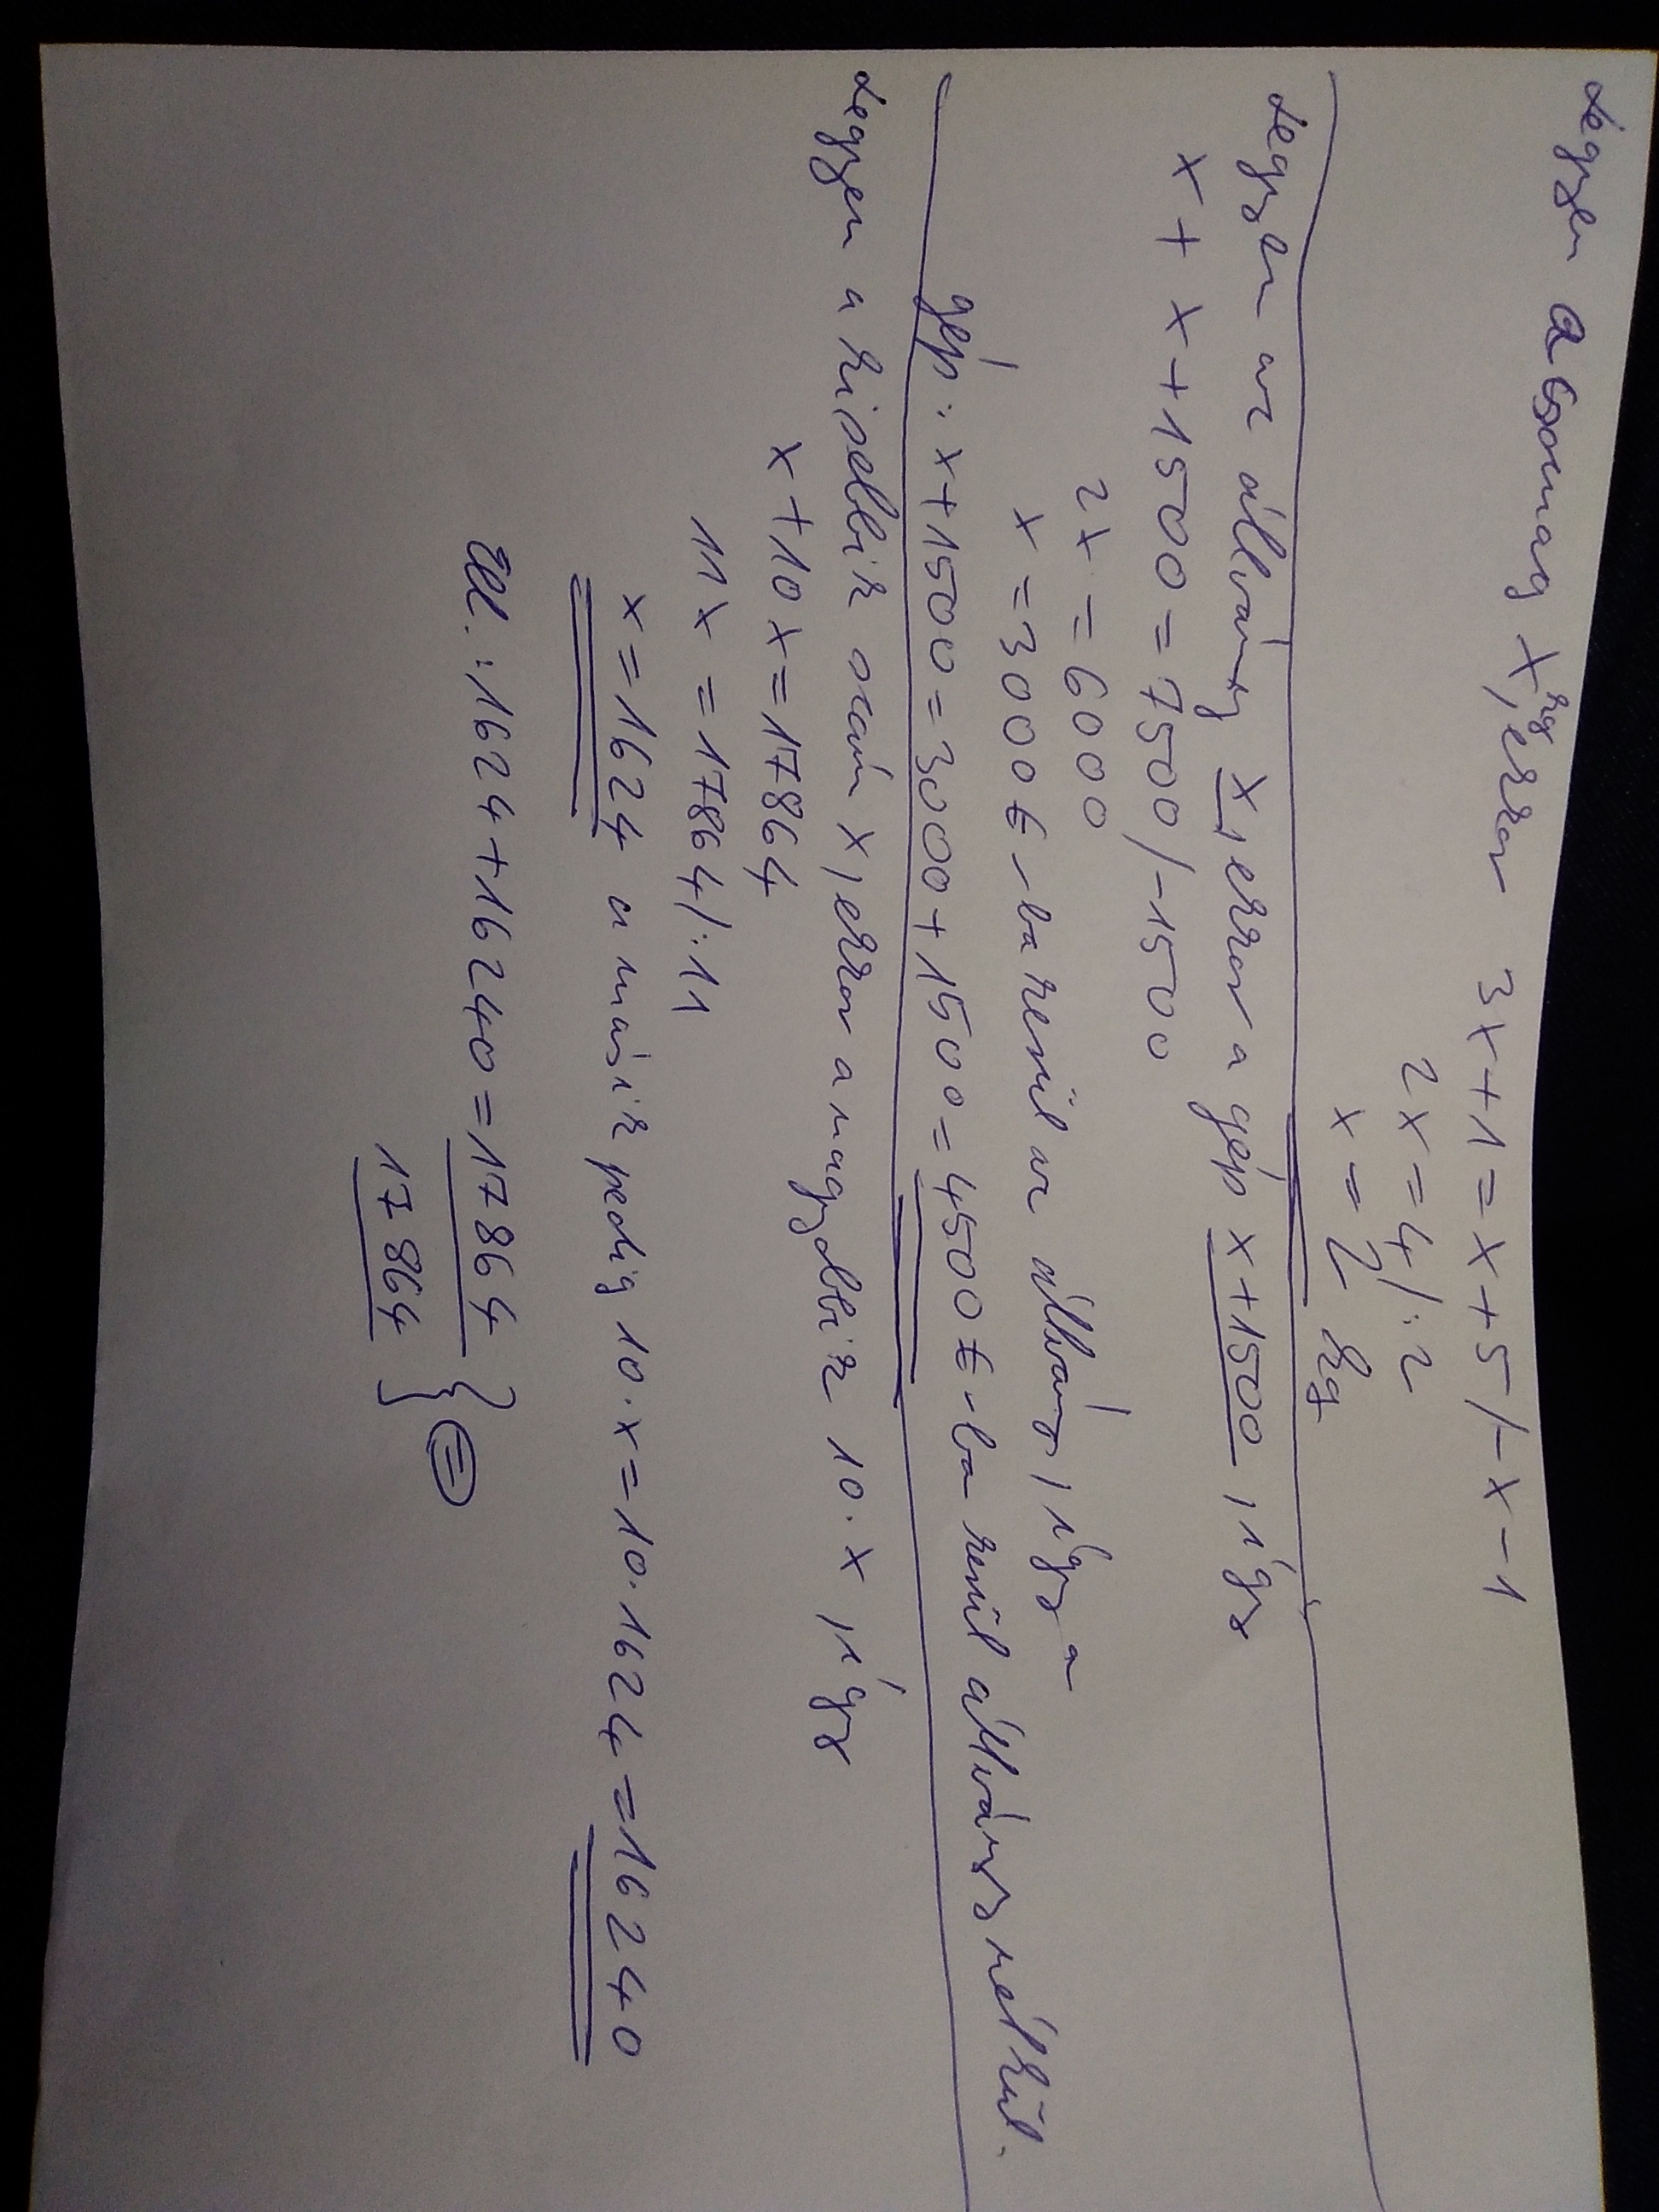 Legyen a csomag x kg, ekkor 3x+1=x+5 /-x-1
2x=4 /:2
x=2 kg
Legyen az állvány x, ekkor a gép x+1500, így
x + x+1500=7500 /-1500
2x=6000
x=3000€-ba kerül az állvány, így a
gép: x+1500=3000+1500=4500€-ba kerül állvány nélkül.
Legyen a kisebbik szám x, ekkor a nagyobbik 10·x, így
x+10x=17864
11x=17864 /:11
x=1624 a másik pedig 10·x=10·1624=16240
Ell.:1624+16240=17864
17864 } =